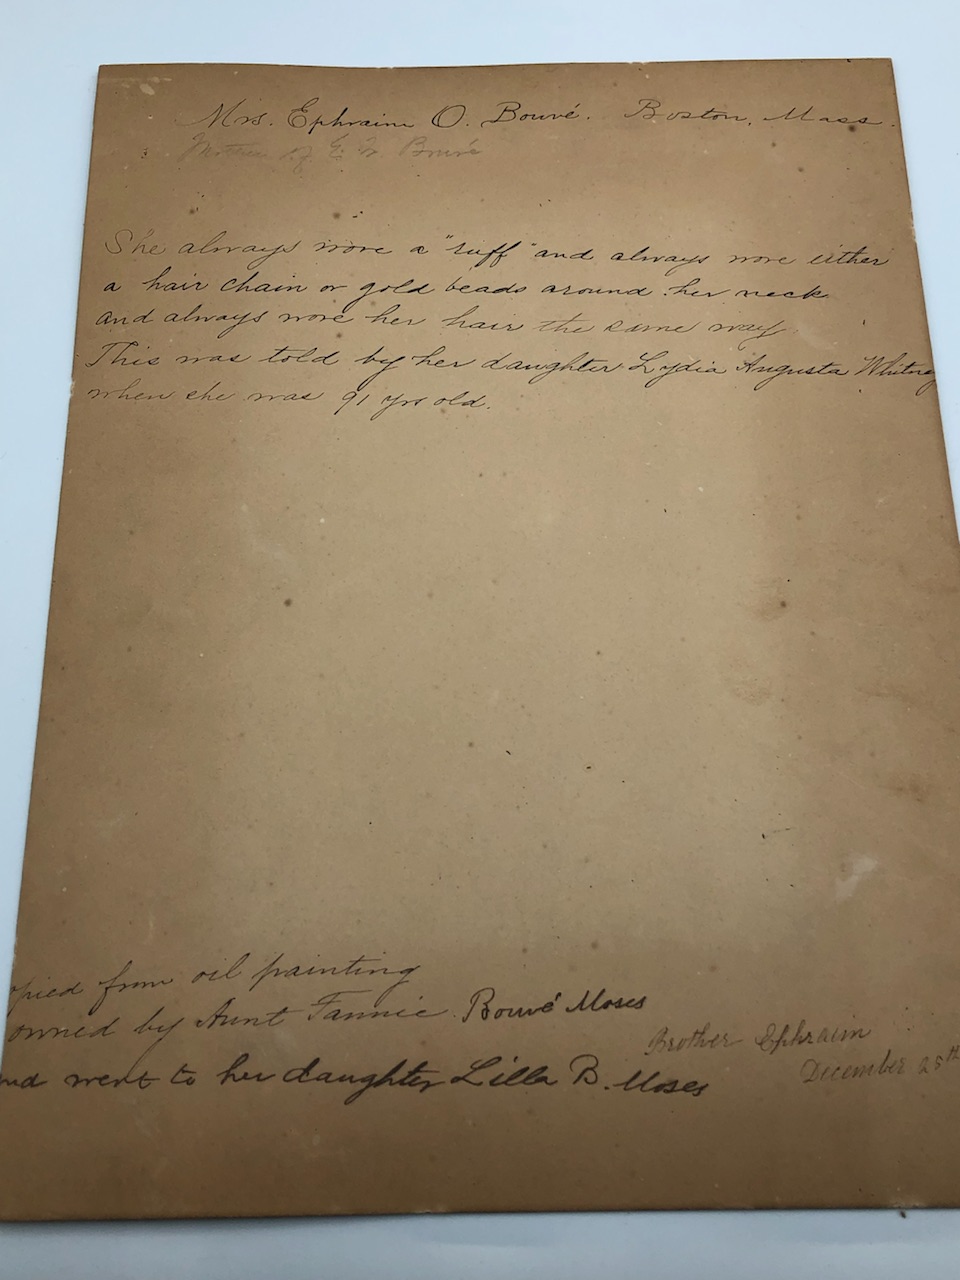 Mrs. Ephraim O. Bouvé. Boston, Mass.
Mother of E. W. Bouvé
She always wore a "ruff" and always wore either
a hair chain or gold beads around her neck
and always wore her hair the same way.
This was told by her daughter Lydia Augusta Whitney
when she was 91 yrs old.
opied from oil painting
owned by Aunt Fannie Bouvé Moses
Brother Ephraim
December 25th
nd went to her daughter Lilla B. Moses